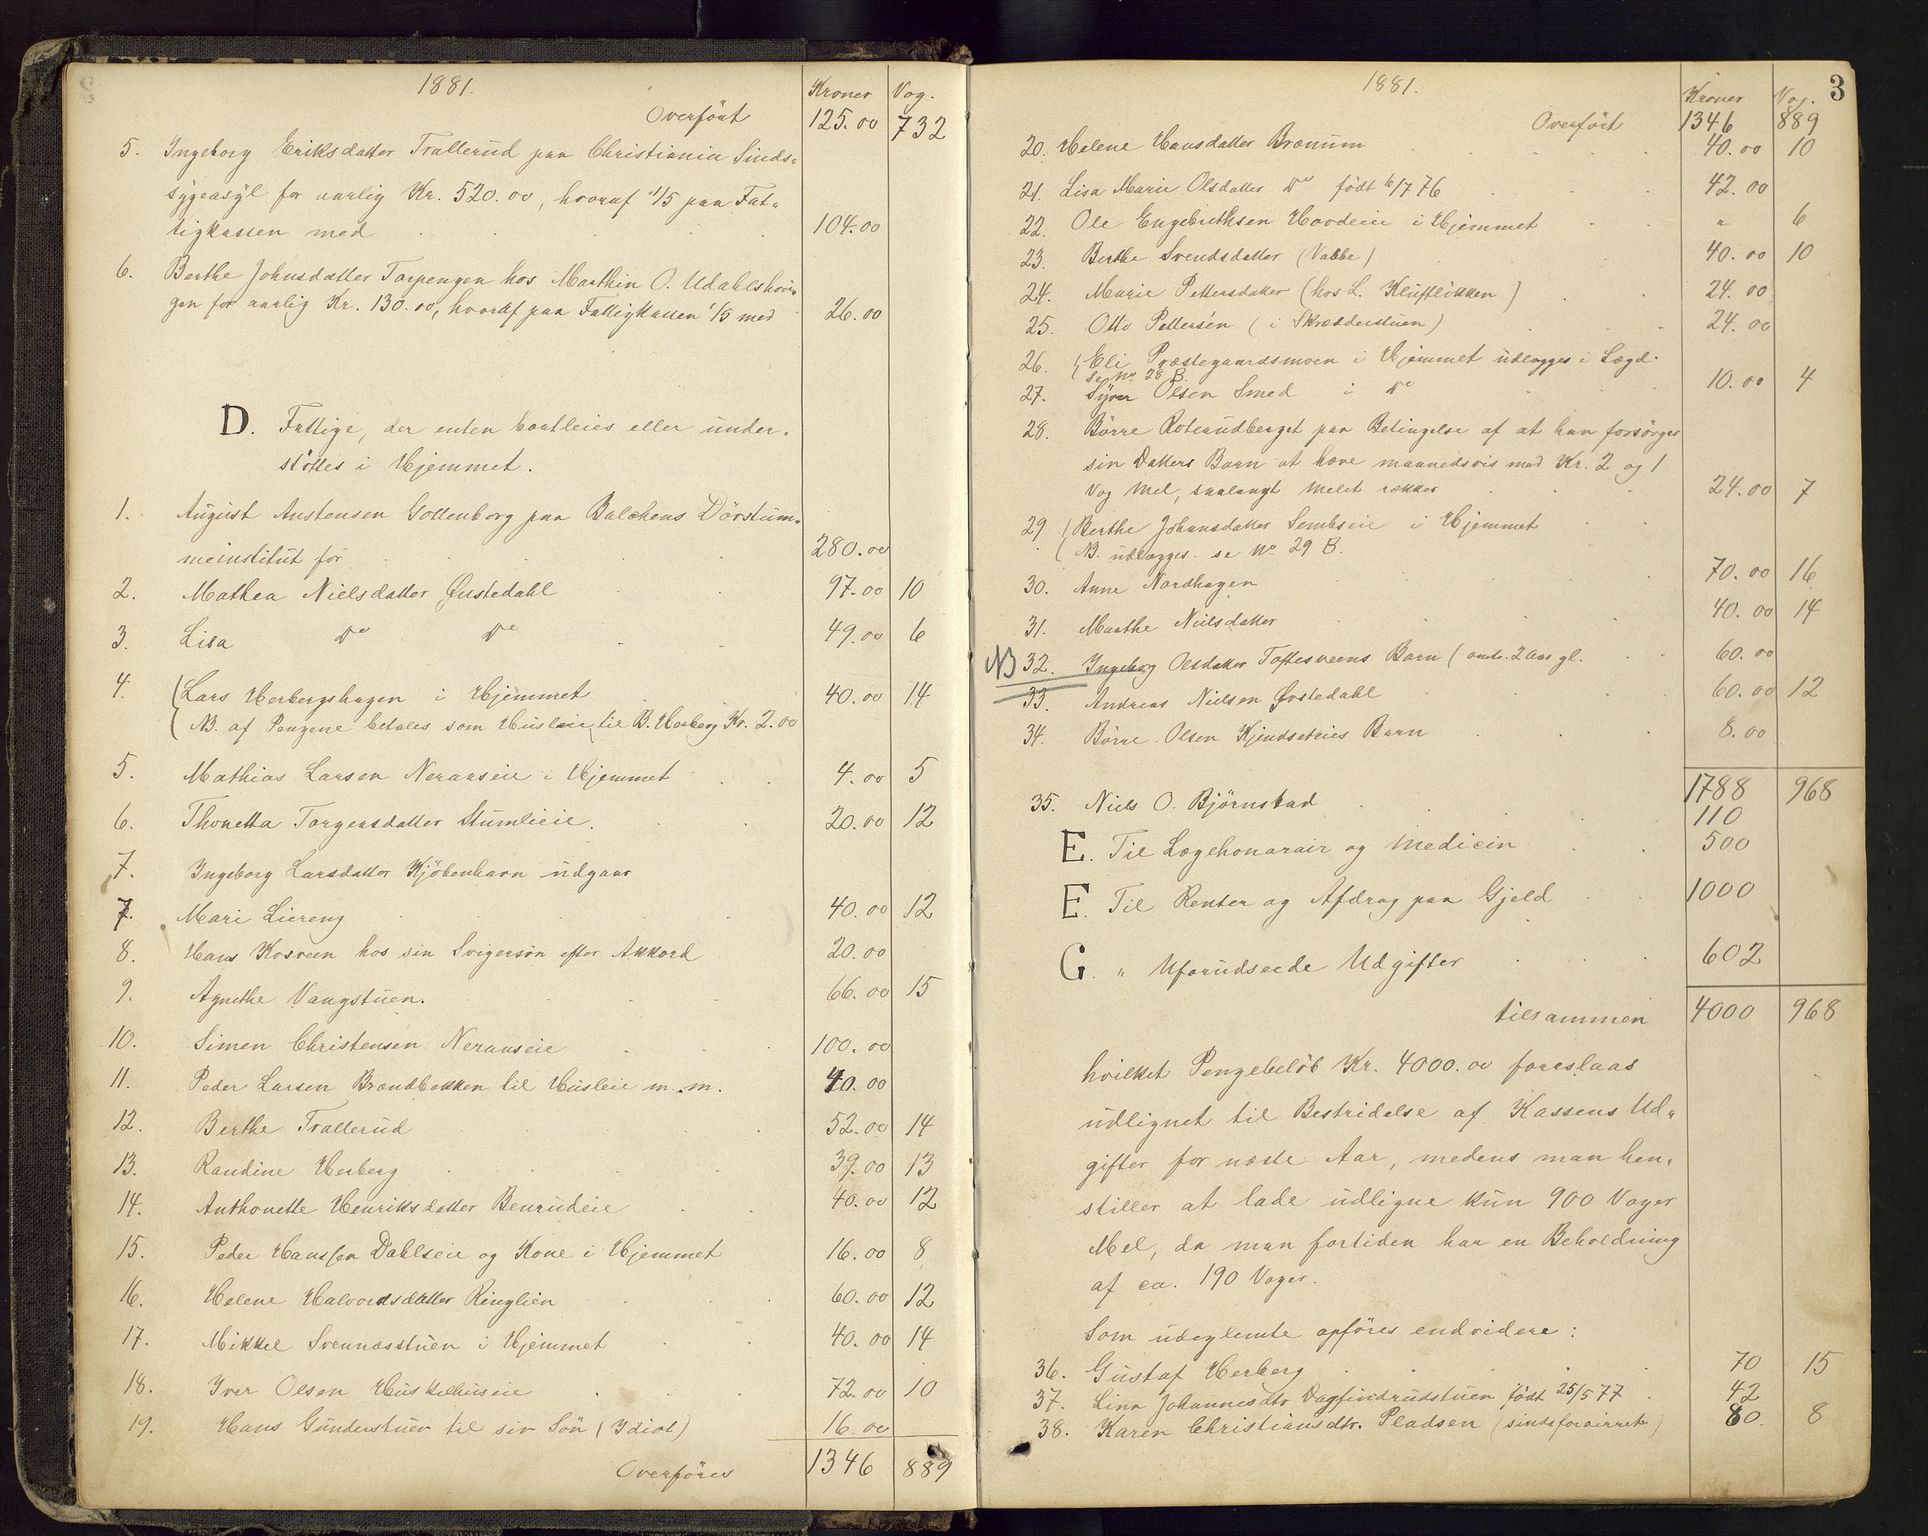 1881.
Kroner Vog.
Overført 125.00 732
5. Ingeborg Eriksdatter Trallerud paa Christiania Sinds-
sygeasyl for aarlig Kr. 520.00, hvoraf 1/5 paa Fat-
tigkassen med 104.00
6. Berthe Johnsdatter Torpengen hos Marthin O. Udahlshavi-
gen for aarlig Kr. 130.00, hvoraf paa Fattigkassen 1/5 med 26.00
D. Fattige, der enten bortleies eller under-
støttes i Hjemmet.
1. August Austensen Gottenborg paa Balchens Dørstum-
meinstitut for 280.00
2. Mathea Nielsdatter Øustedahl 97.00 10
3. Lisa Do Do 49.00 6
4. Lars Herbergshagen i Hjemmet 40.00 14
NB. af Pengene betales som Husleie til B. Herberg Kr. 2.00
5. Mathias Larsen Neraaseie i Hjemmet 4.00 5
6. Thonetta Torgersdatter Stumlieie. 20.00 12
7. Ingeborg Larsdatter Kjøbenhavn udgaar
7. Mari Liereng 40.00 12
8. Hans Kosveen hos sin Svigersøn efter Akkord 20.00
9. Agnethe Vangstuen. 66.00 15
10. Simen Christensen Neraaseie 100.00
11. Peder Larsen Brændbakken til Husleie m.m. 40.00
12. Berthe Trallerud 52.00 14
13. Randine Herberg 39.00 13
14. Anthonette Henriksdatter Benrudeie 40.00 12
15. Peder Hanssen Dahlseie og Kone i Hjemmet 16.00 8
16. Helene Halvorsdatter Ringlien 60.00 12
17. Mikkel Svennæsstuen i Hjemmet 40.00 14
18. Iver Olsen Huskelhuseie 72.00 10
19. Hans Gunderstuen til sin Søn (Idiot) 16.00
Overføres 1346 889
1881.
3
Kroner Vog.
Overført 1346 889
20. Helene Hansdatter Brænum 40.00 10
21. Lisa Marie Olsdatter Do født 6/7 76 42.00
22. Ole Engebrethsen Hovdeie i Hjemmet " 6
23. Berthe Svendsdatter (Vabbe) 40.00 10
24. Marie Pettersdatter (hos L. Kluftløkken) 24.00
25. Otto Pettersen (i Skrædderstuen) 24.00
26. Eli Præstegaardsmoen i Hjemmet udlægges i Lægd.
se No 28 B.
27. Syver Olsen Smed i Do 10.00 4
28. Børre Roteaudberget paa Betingelse af at han forsørger
sin Datters Barn at hæve maanedsvis med Kr. 2 og 1
Vog Mel, saalangt Melet rækker 24.00 7
29 Berthe Johansdatter Sembseie i Hjemmet
NB. udlægges. se No 29 B.
30. Anne Nordhagen 70.00 16
31. Marthe Nielsdatter 40.00 14
NB 32. Ingeborg Olsdatter Toftesveens Barn (omtr. 2 Aar gl. 60.00
33. Andreas Nielsen Øvstedahl 60.00 12
34. Børre Olsen Kjendseteies Barn 8.00
1788 968
35. Niels O. Bjørnstad 110
E. Til Lægehonorair og Medicin 500
E. Til Renter og Afdrag paa Gjeld 1000
G. " Uforudseede Udgifter 602
tilsammen 4000 968
hvilket Pengebeløb Kr. 4000.00 foreslaas
udlignet til Bestridelse af Kassens Ud-
gifter for næste Aar, medens man hen-
stiller at lade udligne kun 900 Voger
Mel, da man fortiden har en Beholdning
af ca. 190 Voger.
Som udeglemte opføres endvidere:
36. Gustaf Herberg 70 15
37. Lina Johannesdtr. Dagfindrudstuen født 25/5 77 42
38. Karen Christiansdtr. Pladsen (sindsforairret) 80. 8